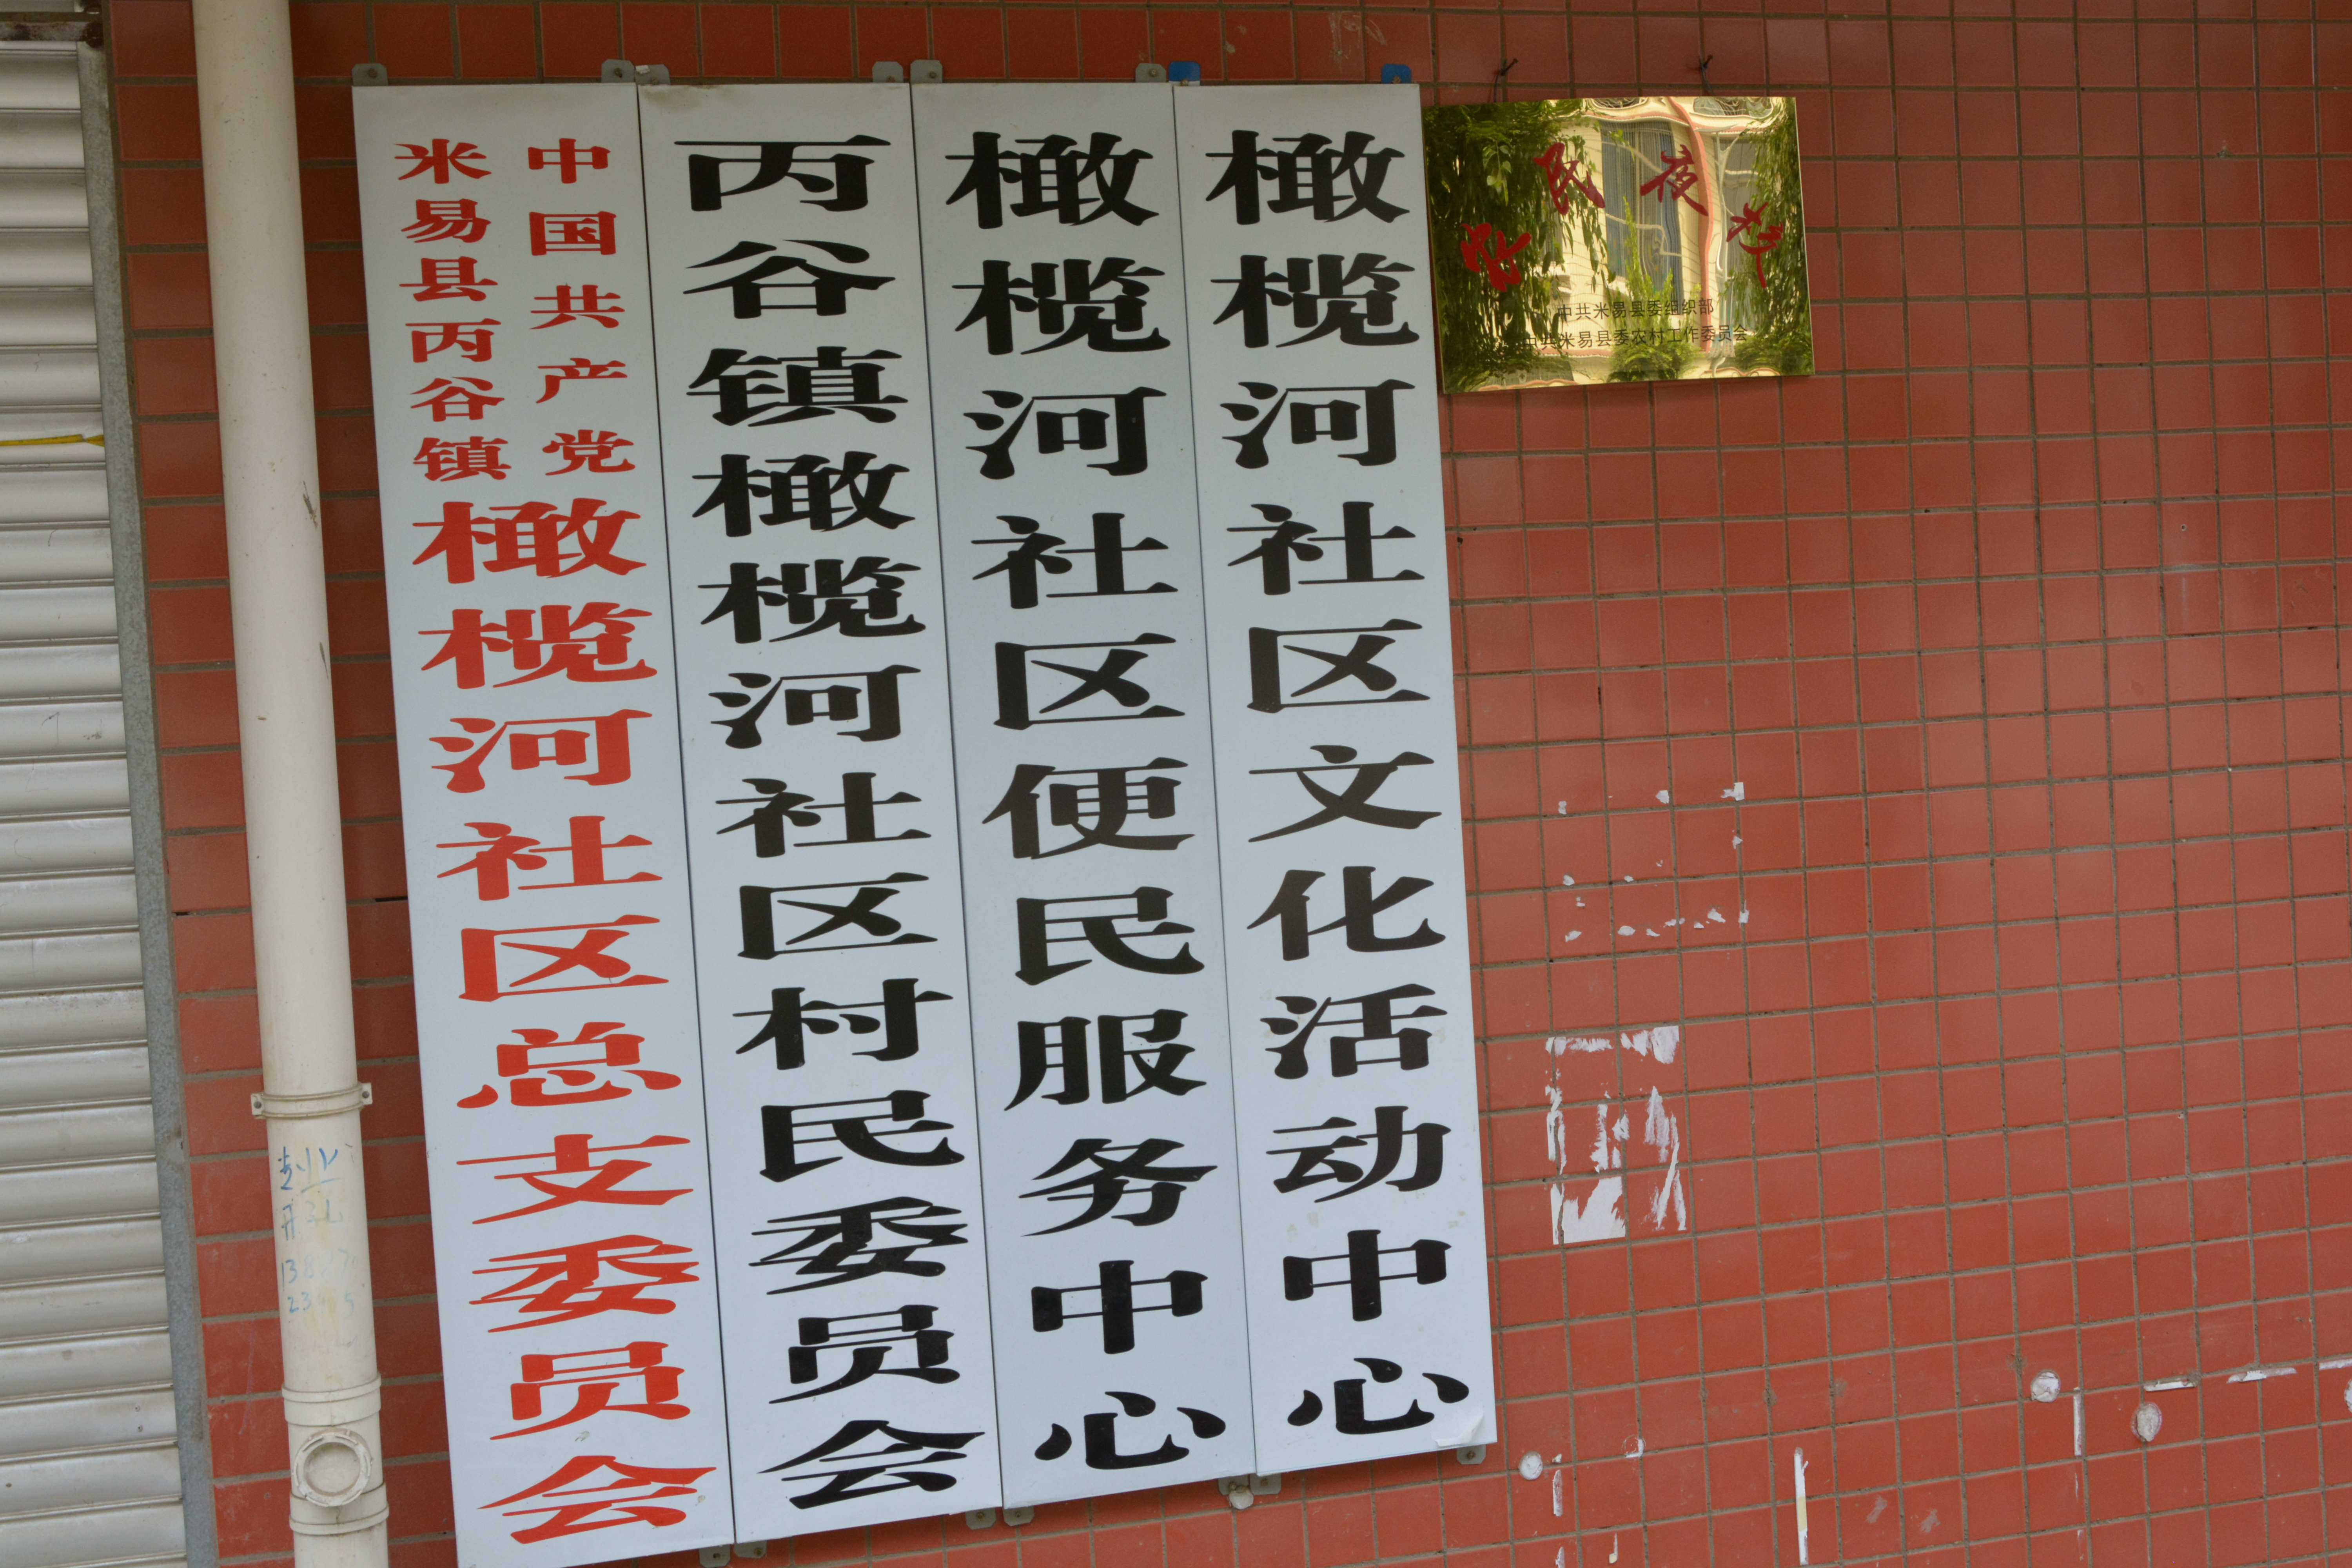 中国共产党
米易县丙谷镇
橄榄河社区总支委员会
丙谷镇橄榄河社区村民委员会
橄榄河社区便民服务中心
橄榄河社区文化活动中心
农民夜校
中共米易县委组织部
中共米易县委农村工作委员会
专业